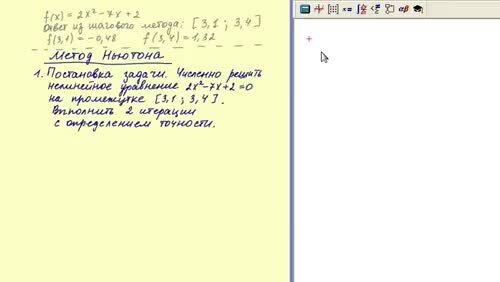 f(x) = 2x² - 7x + 2
Ответ из шагового метода: [3,1 ; 3,4]
f(3,1) = -0,48 f(3,4) = 1,32
Метод Ньютона
1. Постановка задачи. Численно решить
нелинейное уравнение 2x²-7x+2=0
на промежутке [3,1 ; 3,4].
Выполнить 2 итерации
с определением точности.